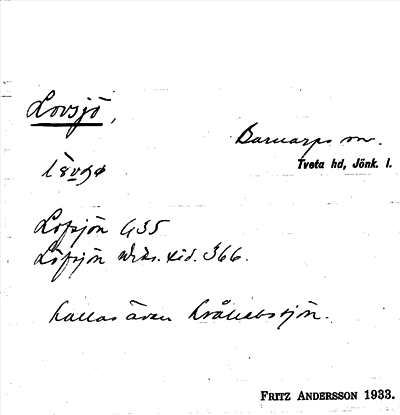 Lovsjö,
Barnarps sn.
Tveta hd, Jönk. l.
Lofsjön G35
Löfsjön Wiks. sid. 366.
kallas även Kråkebosjön.
FRITZ ANDERSSON 1933.